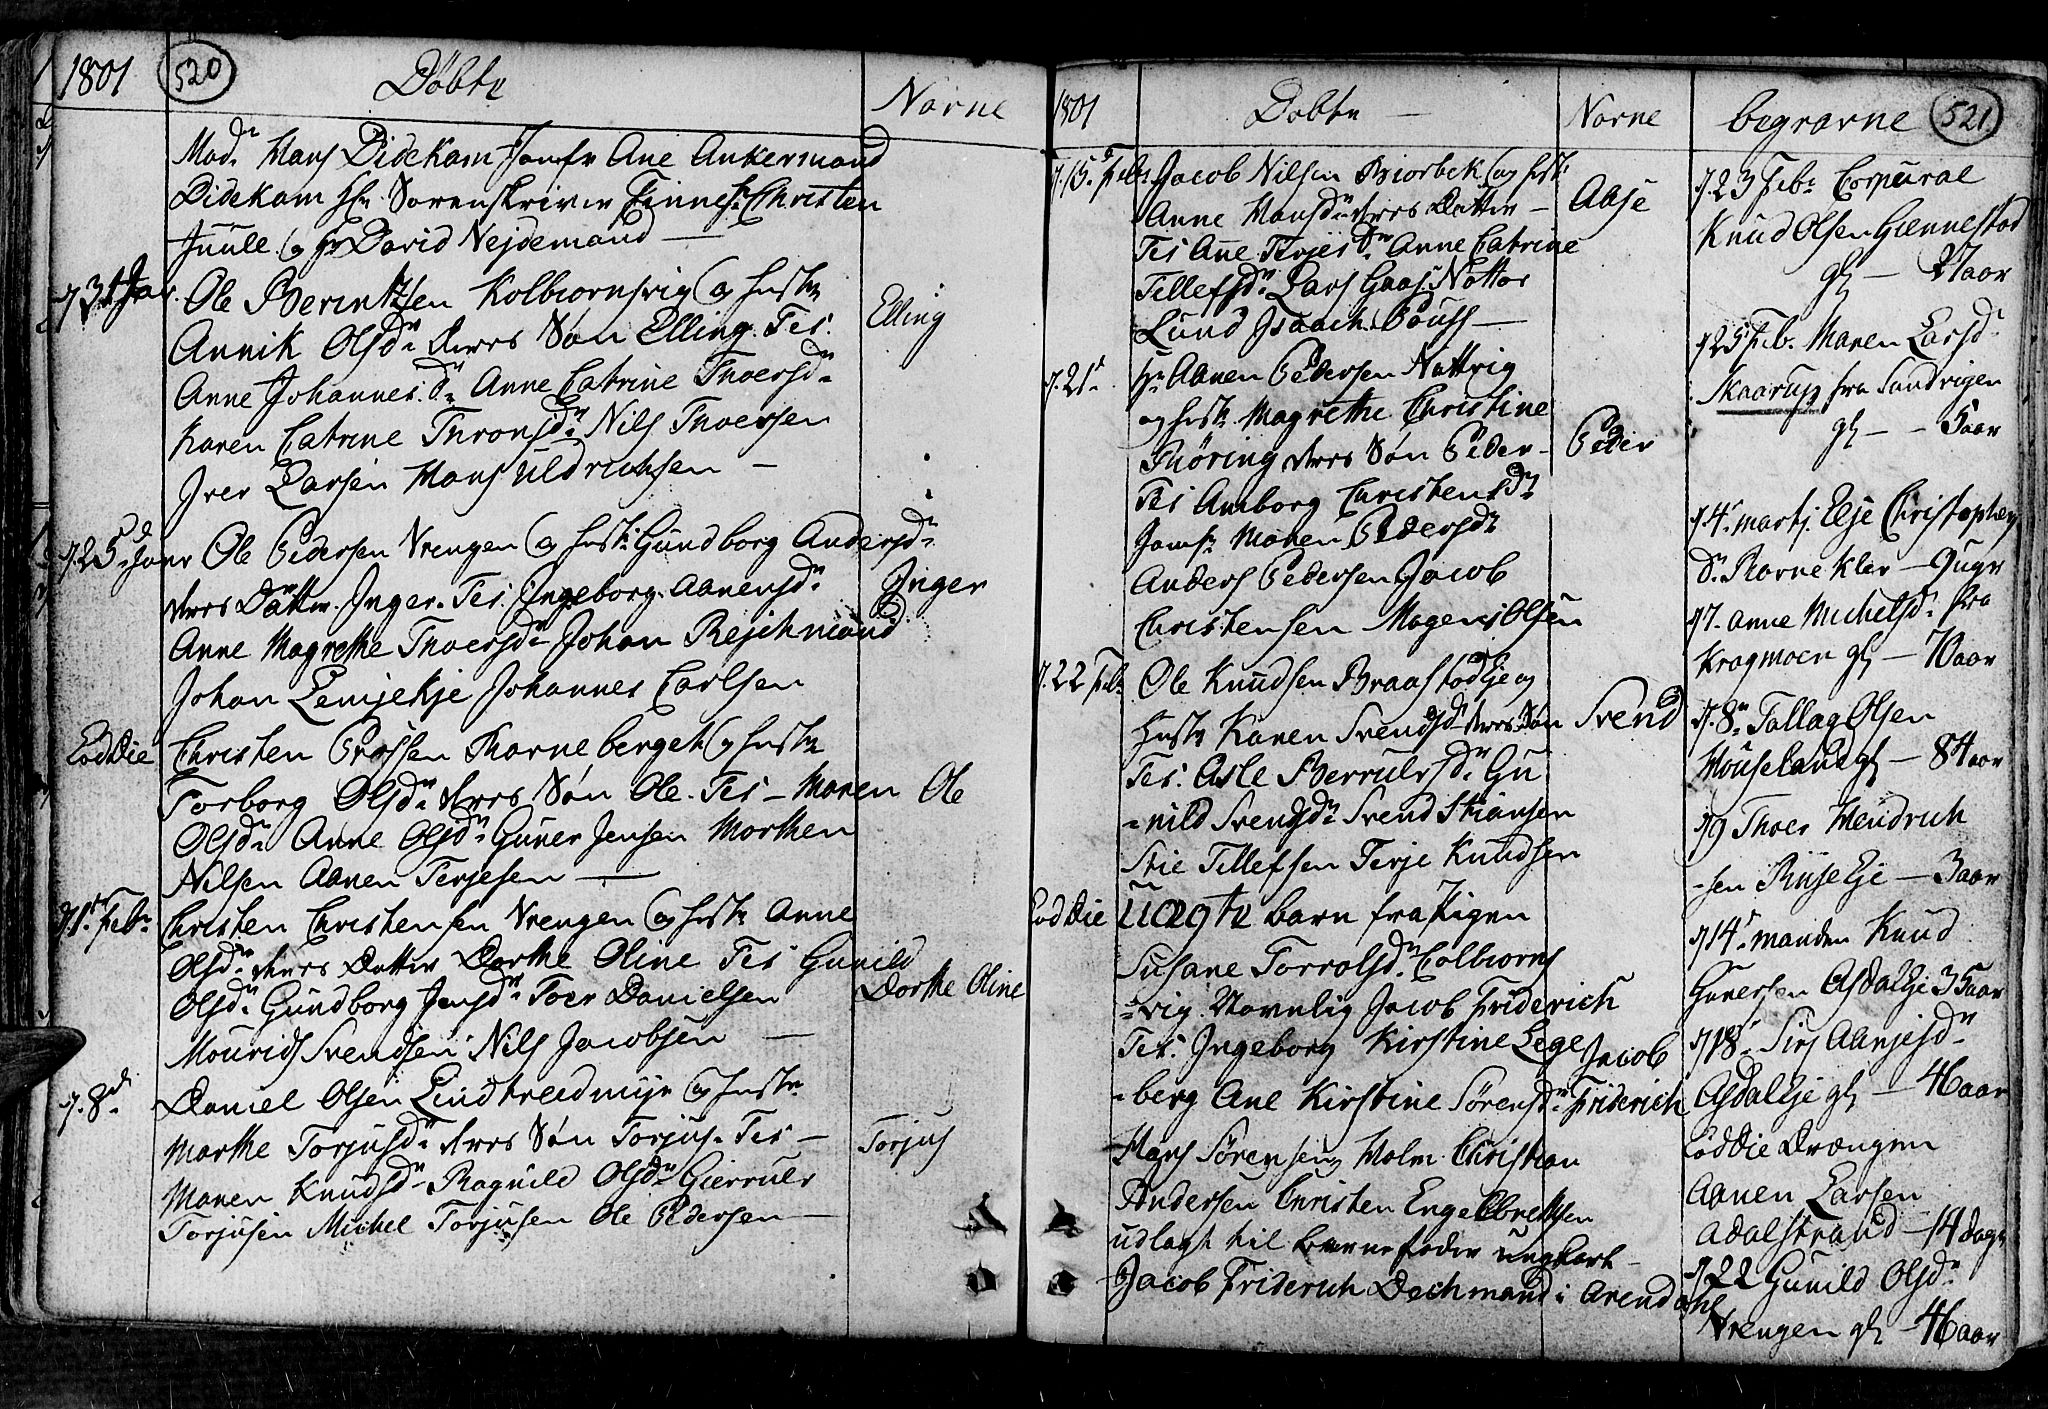 1801 520 Döbte Navne
Mad: Hans Didekam Jomfr Ane Ankermand
Didekam Hr Sorenskriver Finne Hr Christen
Juule og Hr David Nejdemand —
d. 31 Jan. Ole Berentsen Kolbiornsvig og hust: Elling
Annik Olsd: deres Søn Elling. Tes:
Anne Johannesd: Anne Catrine Thoersd:
Karen Catrine Thronsd: Nils Thoersen
Iver Larsen Hans Uldrichsen —
d. 25 Janr Ole Pedersen Vrengen og hust: Gundborg Andersd:
deres Datter Inger. Tes: Ingeborg Aanensd: Inger
Anne Magrethe Thoersd: Johan Rejchmand
Johan Johannes Carlsen
Eod Die Christen Thorneberget og hust:
Torborg Olsd: deres Søn Ole. Tes — Maren Ole
Olsd: Anne Olsd: Guner Jensen Morthen
Nilsen Aanen Terjesen —
d. 1 Feb: Christen Christensen Vrengen og hust: Anne
Olsd: deres Datter Dorthe Oline Tes Gunild
Olsd: Gundborg Jensd: Toer Danielsen Dorthe Oline
Mourids Svendsen Nils Jacobsen —
d. 8 Daniel Olsen Lindtveedmyr og hust:
Marthe Torjusd: deres Søn Torjus. Tes — Torjus
Maren Knudsd: Ragnild Olsd: Giervulr
Torjusen Michel Torjusen Ole Pedersen —
1801 Dobte — Navne
d. 15 Feb: Jacob Nilsen Biorbek og hust: Aase
Anne Hansd: deres Datter —
Tes Ane Terjesd: Anne Catrine
Tellefsd: Lars Gaas Nottos
Lund Isaach Pouss —
d. 21 Hr Aanen Pedersen Nattvig
og hust: Magrethe Christine
Thøring deres Søn Peder — Peder
Tes Amborg Christensd:
Jomf: Maren Pedersd:
Anders Pedersen Jacob
Christensen Mogens Olsen
d. 22 Feb: Ole Knudsen Braastad Eje og
hust: Karen Svendsd: deres Søn Svend
Tes: Asle Bervulvsd: Gu
nild Svendsd: Svend Stiansen
Stie Tellefsen Terje Knudsen
Eod Die Uægte barn fra Pigen
Susane Torvolsd: Colbiorns
vig Navnlig Jacob Friderich
Tes: Ingeborg Kirstine Lege Jacob
berg Ane Kirstine Sørensd: Friderich
Hans Sørensen Holm Christian
Andersen Christen Engelbretsen
udlagt til barnefader ungkarl —
Jacob Friderich Dechmand i Arendahl
begravne 521
d. 23 Feb: Corpural
Knud Olsen Giennestad
gl — 27 aar
d. 25 Feb. Maren Larsd:
Skaarup fra Sandvigen
gl — 5 aar
d. 4 martj. Else Christophers
d: Ravnekler — 9 ugr
d. 7. Anne Michelsd: fra
Kragmoen gl — 70 aar
d. 8 Tallag Olsen
Houseland gl — 84 aar
d 9 Thoer Hendrich
sen Riise Eje — 3 aar
d 14 manden Knud
Gunersen Asdal Eje 35 aar
d 18 Sirs Aanjesd:
Asdal Eje gl — 46 aar
Eod Die Drængen
Aanen Larsen
Adalstrand — 14 dage
d 22 Gunild Olsd:
Vrengen gl — 46 aar